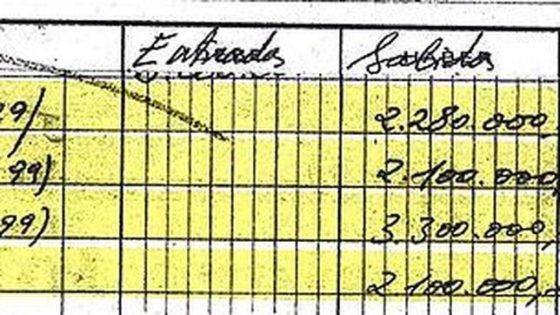 Entradas Salidas
99) 2.280.000,
99) 2.100.000,
99) 3.300.000,
2.100.000,